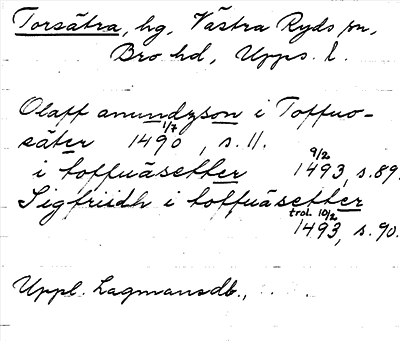 Torsätra, hg, Västra Ryds sn,
Bro hd, Upps. l.
Olaff amundzson i Toffuo-
säter 1/7 1490, s. 11.
i toffuäsetter 9/2 1493, s. 89.
Sigfriidh i toffuäsetter
trol. 10/2 1493, s. 90.
Uppl. Lagmansdb., . . . .